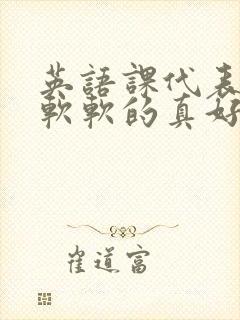 英語課代表
軟軟的真好
崔道富